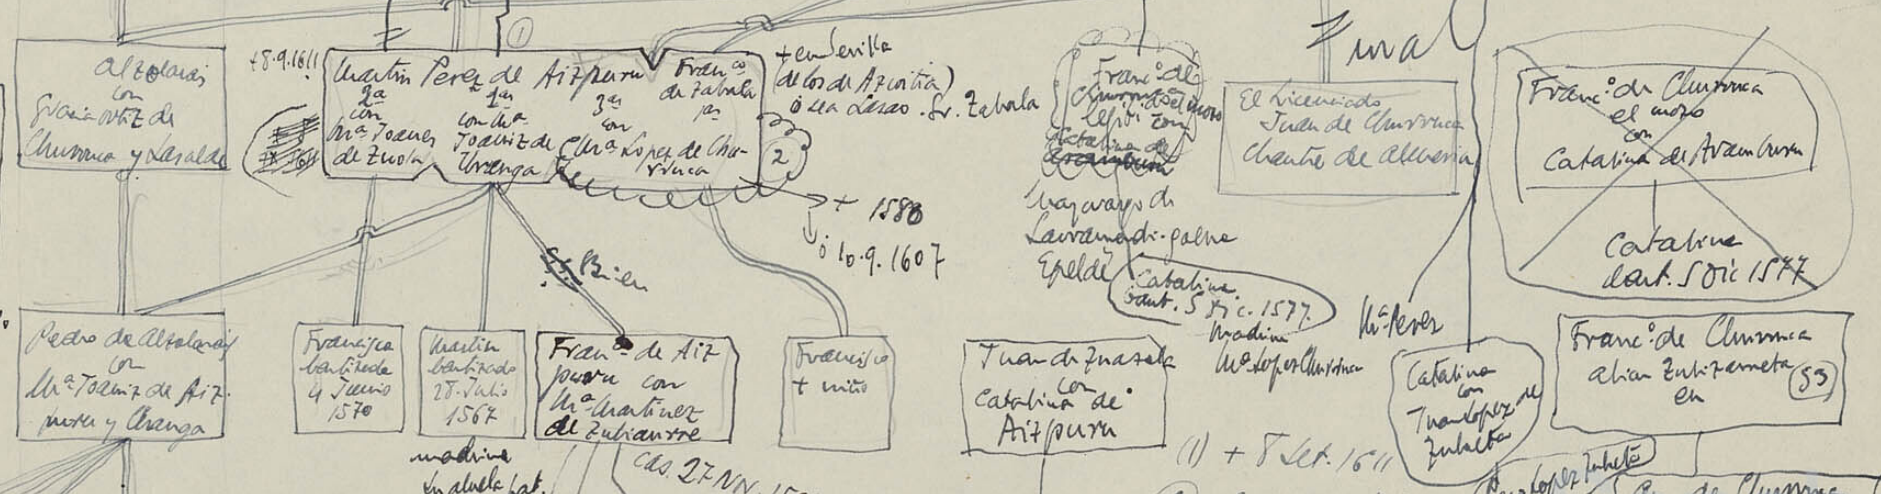 Alzolaras
con
Gracia Ortiz de
Churruca y Lasalde
+8.9.1611
(1)
Martin Perez de Aizpuru
2as
con
Mª Joanes
de Zuola
1as
con Mª
Joaniz de
Uranga
3as
con
Mª Lopez de Chu-
rruca
Franco
de Zabala
1as
+ en Sevilla
de los de Azcoitia)
o sea Lasao. Sr. Zabala
2
+ 1580
ó 10.9.1607
Franco de
Churruca el mozo
con
Catalina de
Aramburu
mayorazgo de
Epelde
Catalina
baut. 5 Dic. 1577.
madrina
Mª Lopez Churruca
El Licenciado
Juan de Churruca
Chantre de Almeria
Franco de Churruca
el mozo
con
Catalina de Aramburu
Catalina
baut. 5 Dic 1577
Si. Bien
Pedro de Alzolaras
con
Mª Joaniz de Aiz-
puru y Uranga
Francisca
bautizada
4 Junio
1570
Martin
bautizado
28 Julio
1567
madrina
su abuela pat.
Franco de Aiz
puru con
Mª Martinez
de Zubiaurre
cas. 27 Nov.
Francisco
+ niño
Juan de Zuazola
con
Catalina de
Aizpuru
(1) + 8 Set. 1611
Mª Perez
Catalina
con
Juan Lopez de
Zubelta
Franco de Churruca
alias Zubizarreta
en
53
Lopez Zubelta
de Churruca